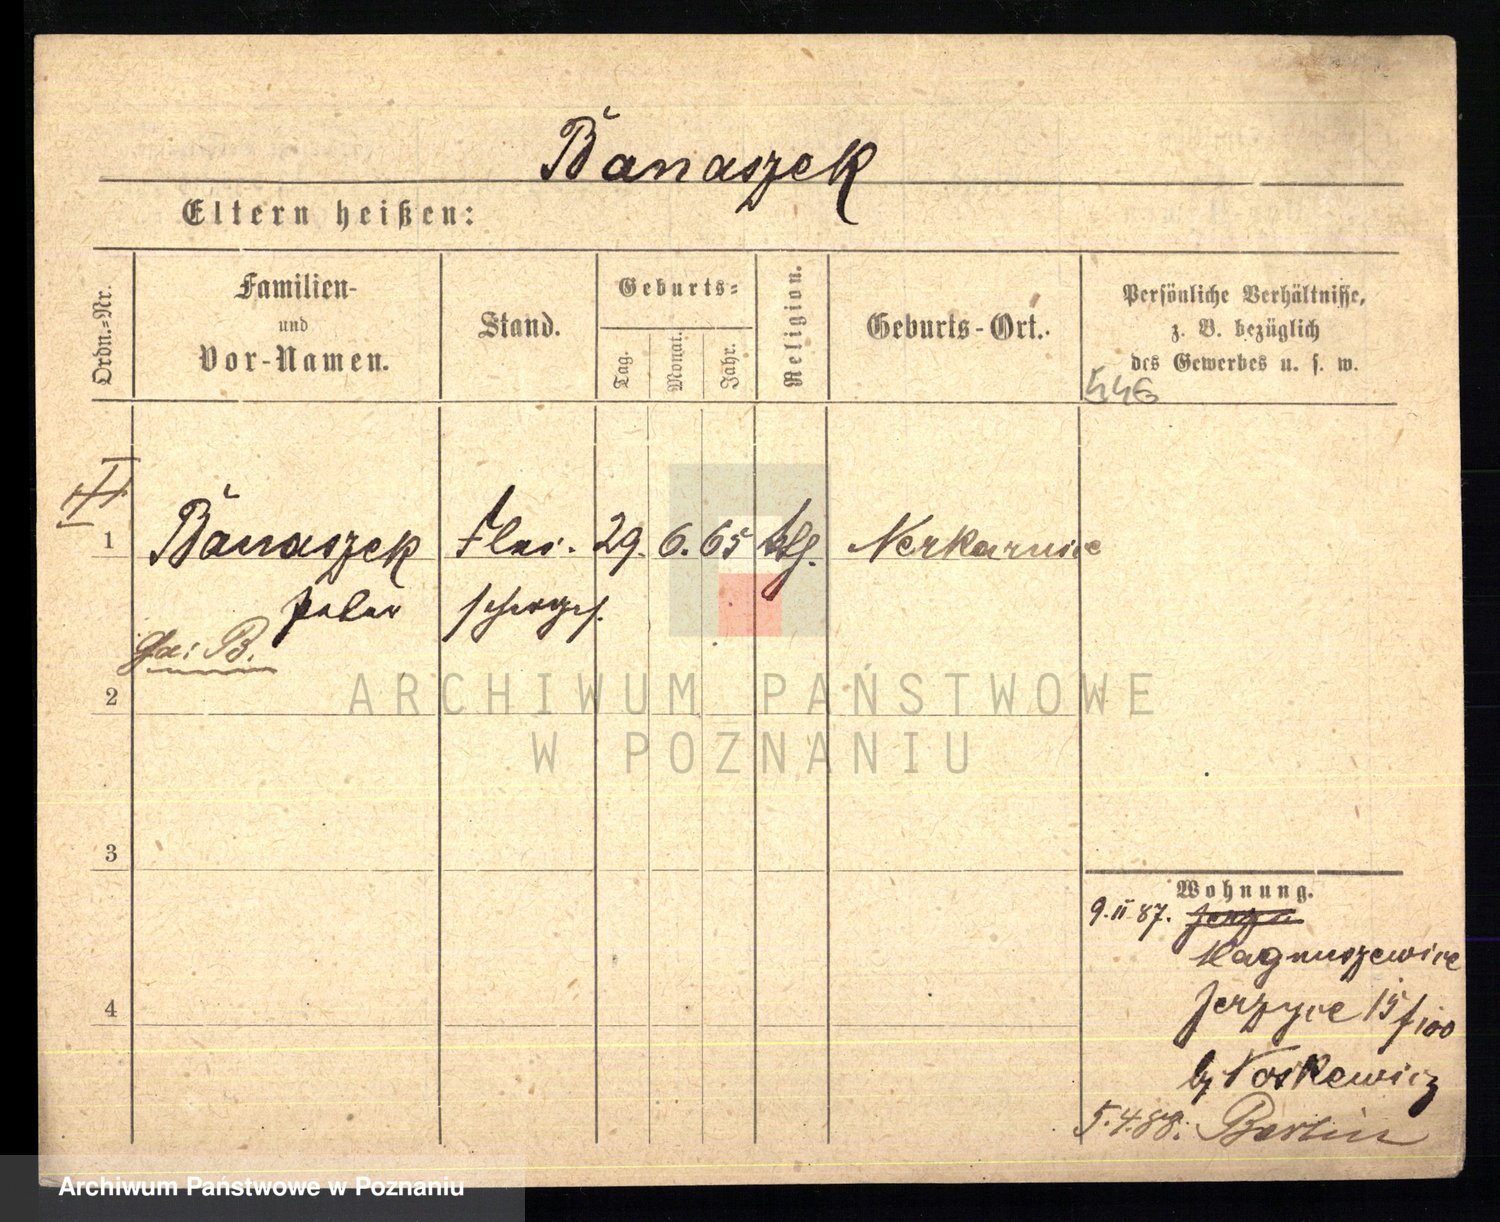 Banaszek
Eltern heißen:
Ordn.=Nr.
Familien-
und
Vor-Namen.
Stand.
Geburts=
Tag.
Monat.
Jahr.
Religion.
Geburts-Ort.
Persönliche Verhältnisse,
z. B. bezüglich
des Gewerbes u. s. w.
546
1 Banaszek Flei- 29. 6. 65 ktl. Nerkarnice
Peter schergs.
B.
2
3
4
Wohnung.
9.II 87.
Magnuszewice
Jerzyce 15/100
b/ Noskewicz
5.4.88. Berlin
ARCHIWUM PAŃSTWOWE
W POZNANIU
Archiwum Państwowe w Poznaniu